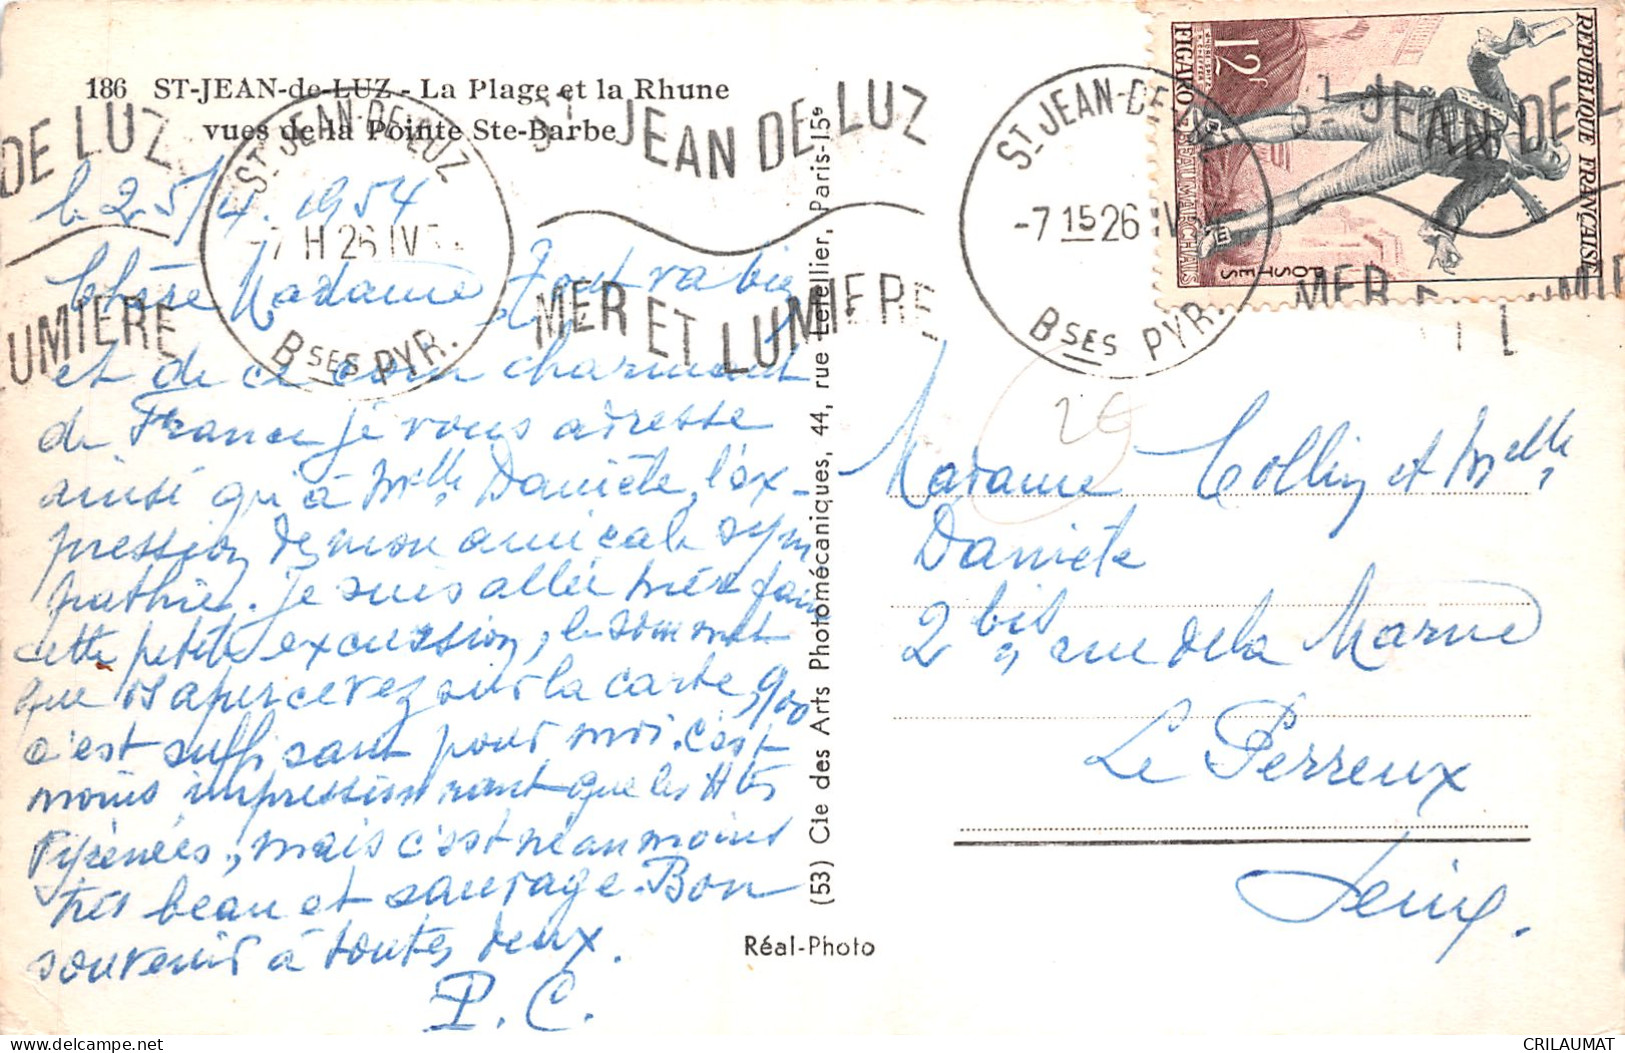 186 ST-JEAN-de-LUZ - La Plage et la Rhune
vues de la Pointe Ste-Barbe
DE LUZ
LUMIERE
ST JEAN-DE-LUZ
-7 H 26 IV 54
BSES PYR.
ST JEAN DE LUZ
MER ET LUMIERE
ST JEAN-DE-LUZ
-7 15 26 IV
BSES PYR.
ST JEAN DE L
MER E L LUMIER
REPUBLIQUE FRANÇAISE
POSTES
12f
FIGARO
BEAUMARCHAIS
le 25/4. 1954
Chère Madame, Tout va bien
et de ce coin charmant
de France je vous adresse
ainsi qu'à Melle Danièle, l'ex-
pression de mon amicale sym
pathie. Je suis allée hier faire
cette petite excursion, le sommet
que vs apercevez sur la carte, 900
c'est suffisant pour moi. c'est
moins impressionnant que les Htes
Pyrénées, mais c'est néanmoins
très beau et sauvage. Bon
souvenir à toutes deux.
P. C.
(53) Cie des Arts Photomécaniques, 44, rue Letellier, Paris-15e
Réal-Photo
2€
Madame Collin et Melle
Danièle
2 bis, rue de la Marne
Le Perreux
Seine.
CRILAUMAT